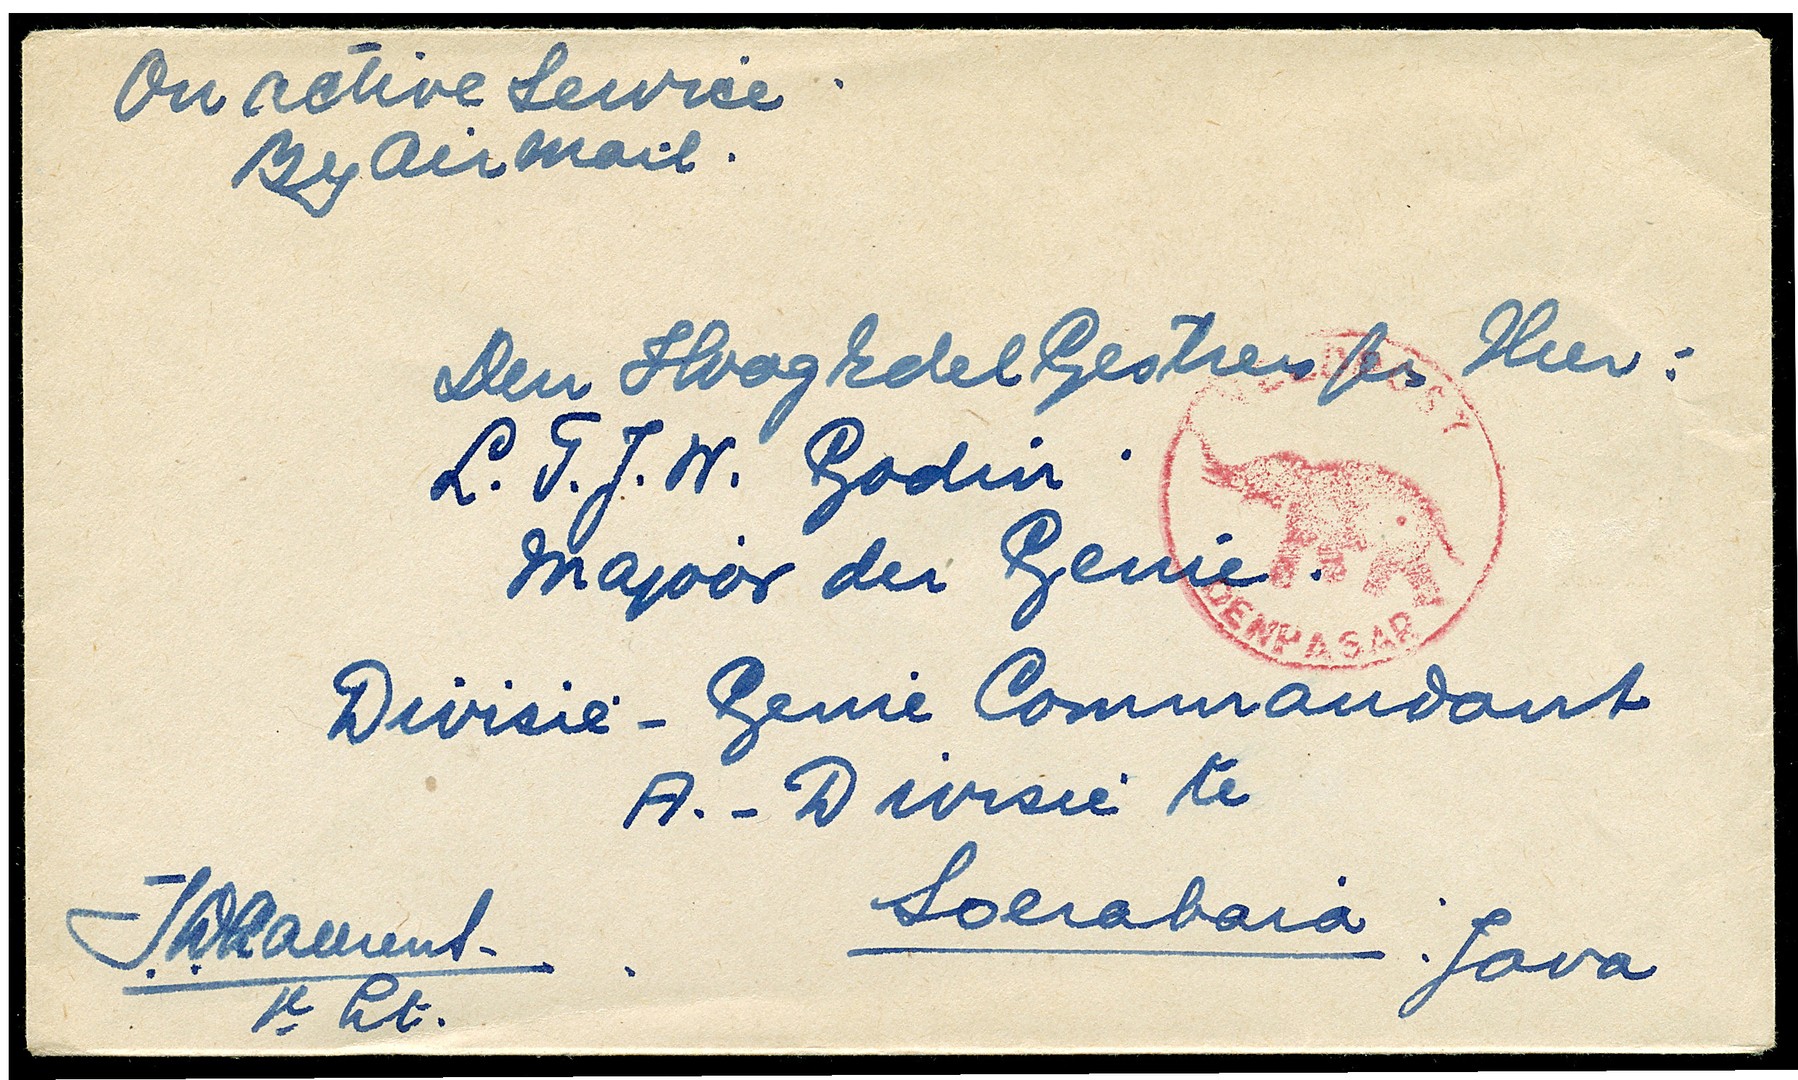 On active Service
By Air Mail.
Den HoogEdelGestrengen Heer:
L. F. J. W. Godin.
Majoor der Genie.
Divisie - Genie Commandant
A. - Divisie te
Soerabaia. Java
1e Lt.
DENPASAR